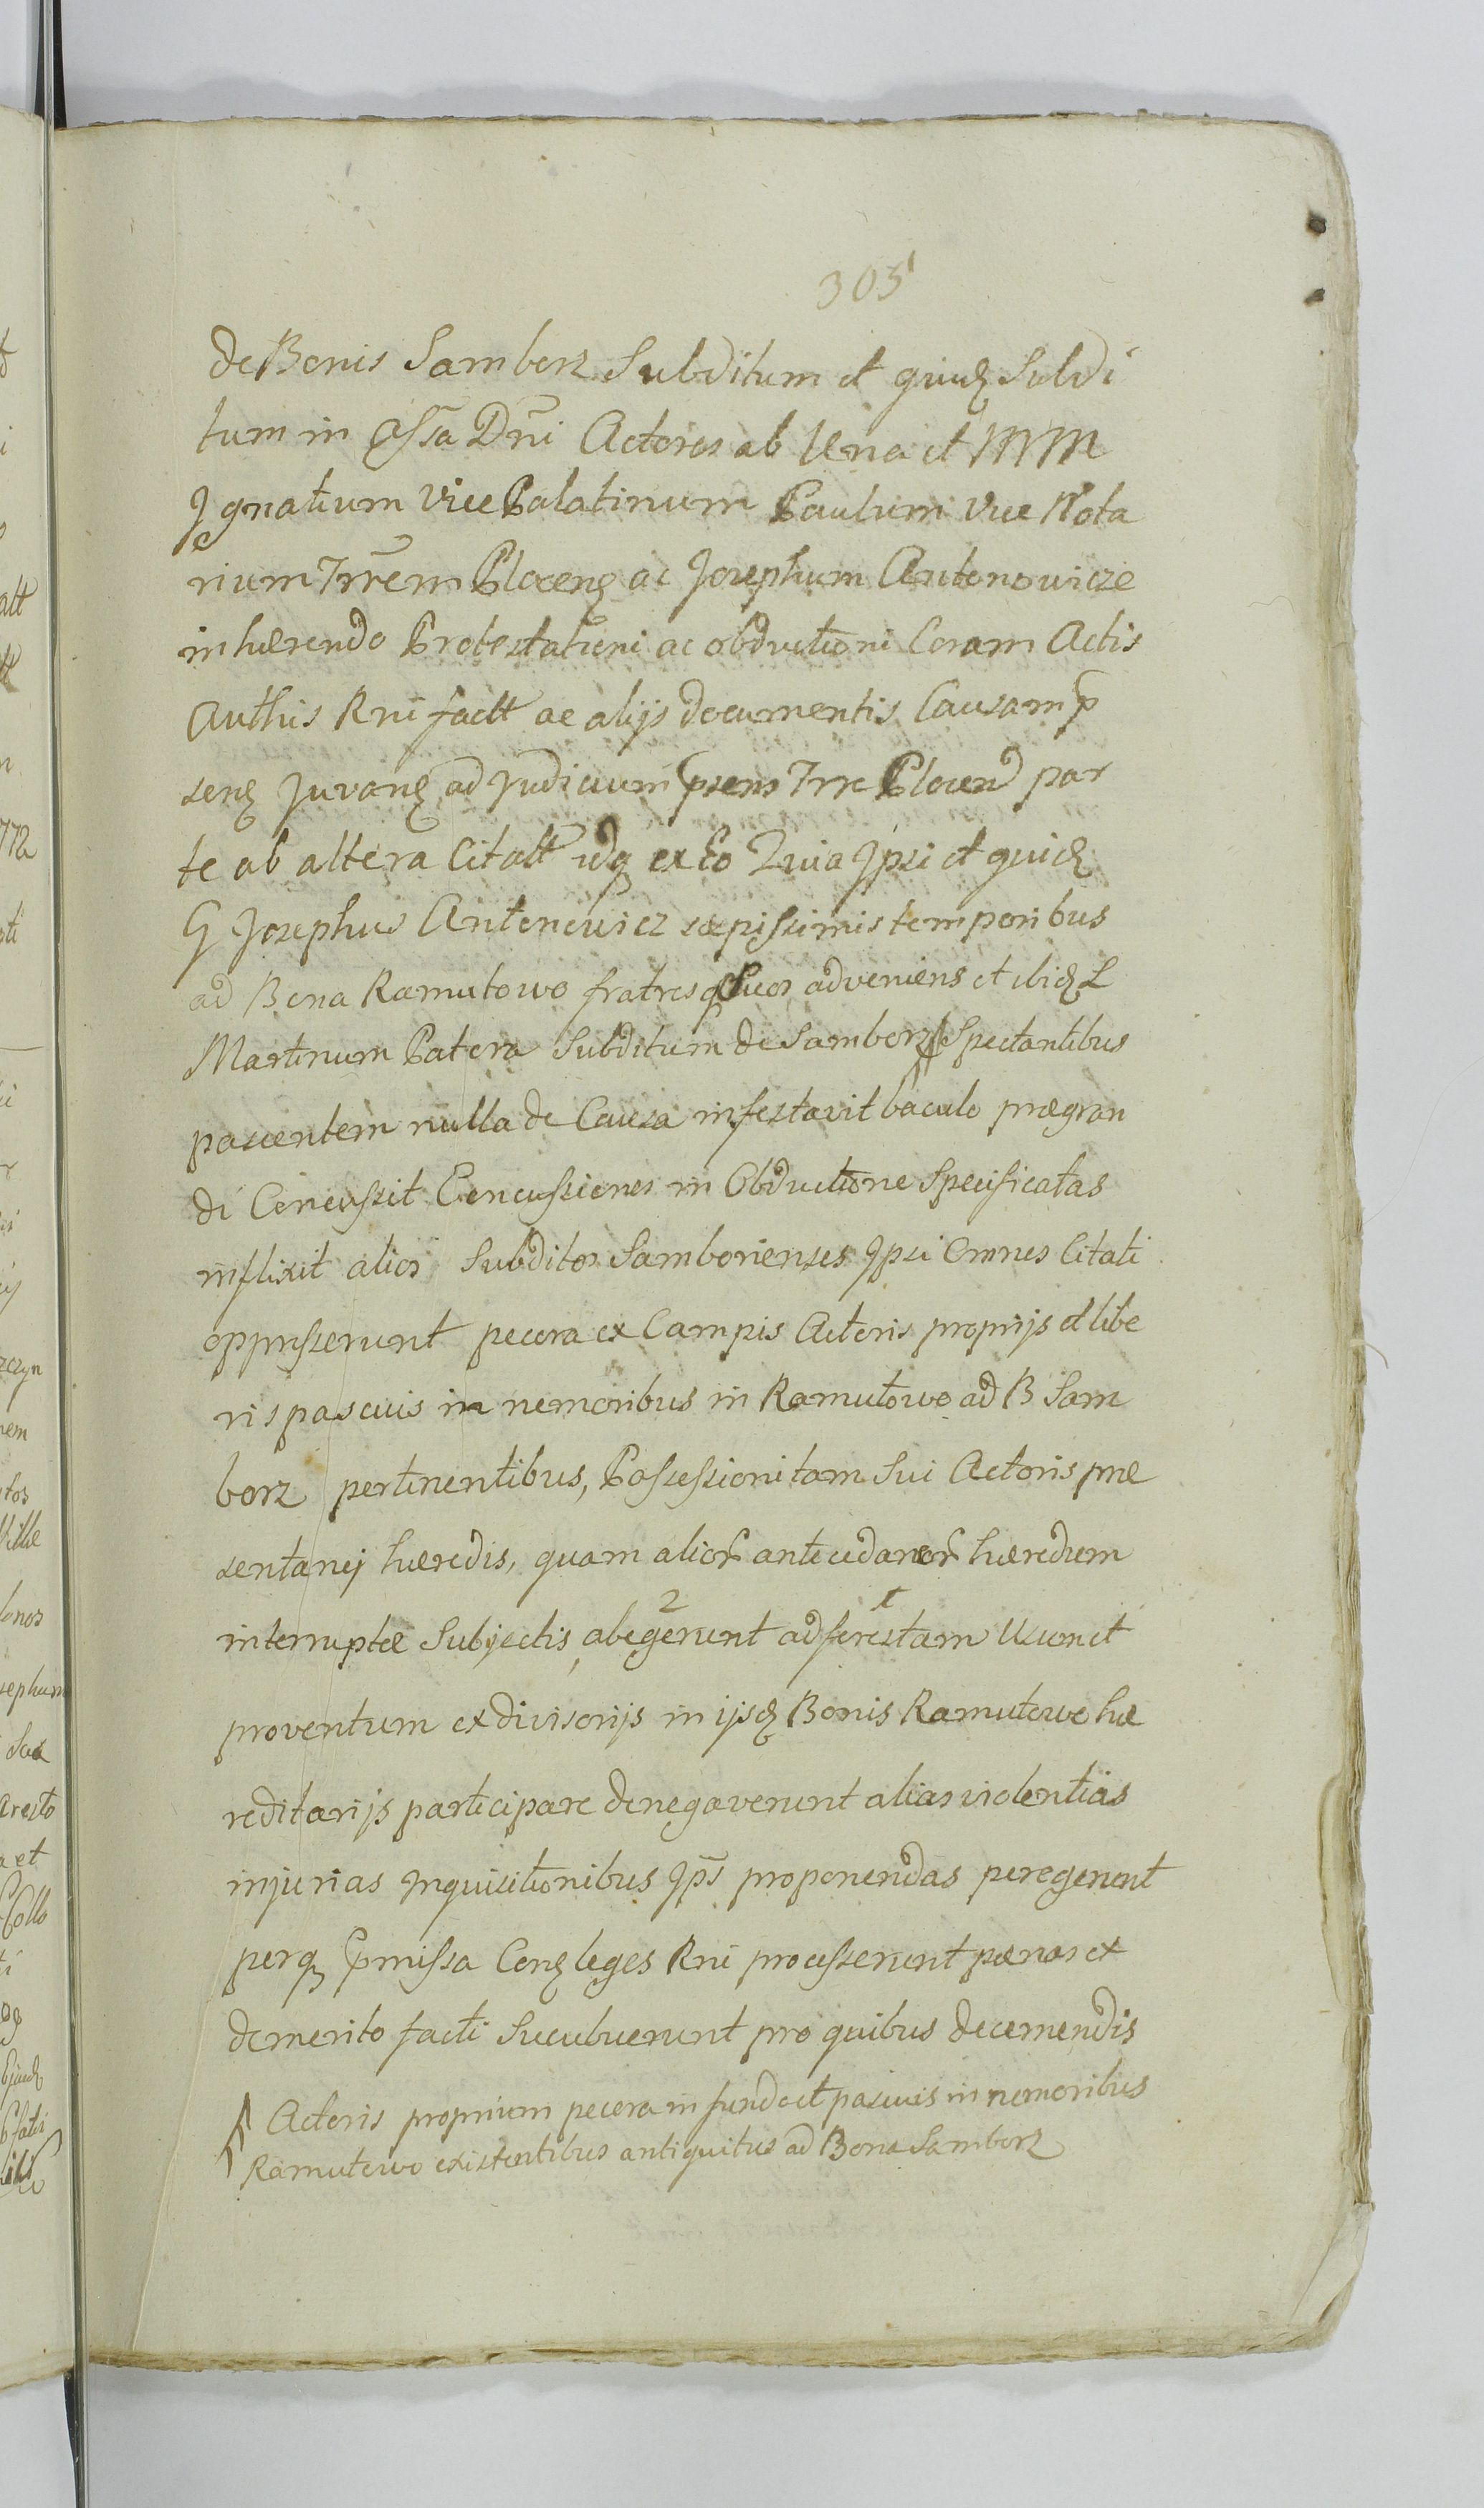 305
de Bonis Samborz Subditum et quidz Subdi
tum in Assa Dni Actores ab Una et MM
Ignatium Vice Palatinum Paulum Vice Nota
rium Trrem Plocenz ac Josephum Antonowicze
inhærendo Protestationi ac obductioni Coram Actis
Authis Rni factt ac alijs documentis Causam p
senz Juvanz ad Judicium psens Trre Plocen par
te ab altera Citatt idq ex Eo Quia Ipsi et quidz
G Josephus Antonowicz sæpissimis temporibus
ad Bona Ramutowo fratresq Suos adveniens et ibidz L
Martinum Patera Subditum de Samborz Spectantibus
pascentem nulla de Causa infestavit baculo prægran
di Concussit Concussiones in Obductione Specificatas
inflixit alios Subditos Samborienses Ipsi Omnes Citati
oppresserunt pecora ex Campis Actoris proprijs et libe
ris pascuis in nemoribus in Ramutowo ad B Sam
borz pertinentibus, Possessioni tam Sui Actoris præ
sentanej hæredis, quam alior antecedaneor hæredum
interruptæ Subjectis, abegerunt ad forestam Usum et
2 1
proventum ex divisorijs in ijsdz Bonis Ramutowo hæ
reditarijs participare denegaverunt alias violentias
injurias Inquisitionibus Ips proponendas peregerunt
perq pmissa Conz leges Rni processerunt pænas ex
demerito facti Sucubuerunt pro quibus decernendis
Actoris proprium pecora in fundo et pascuis in nemoribus
Ramutowo existentibus antiquitus ad Bona Samborz